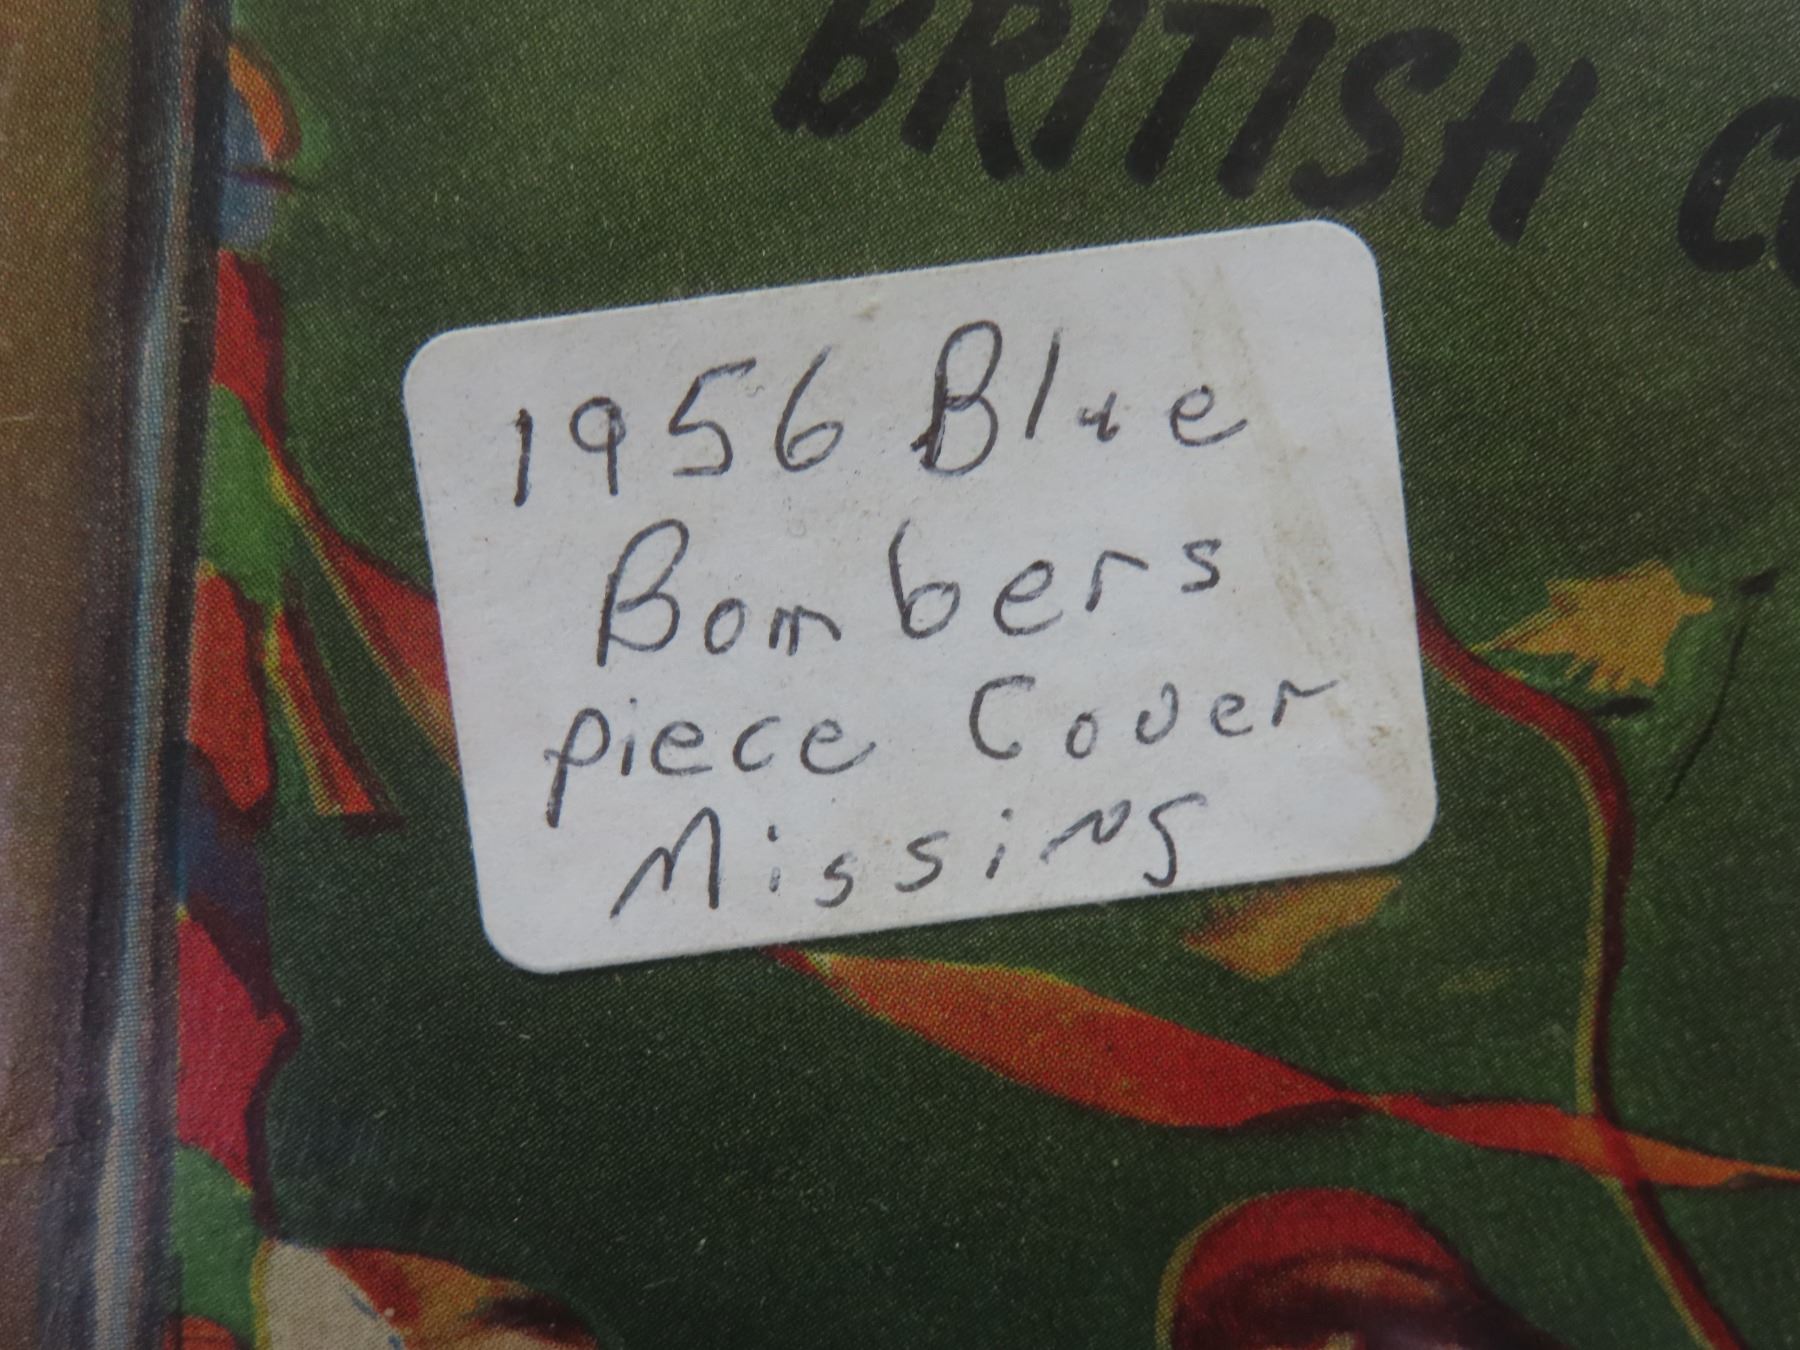 BRITISH
1956 Blue
Bombers
piece Cover
Missing